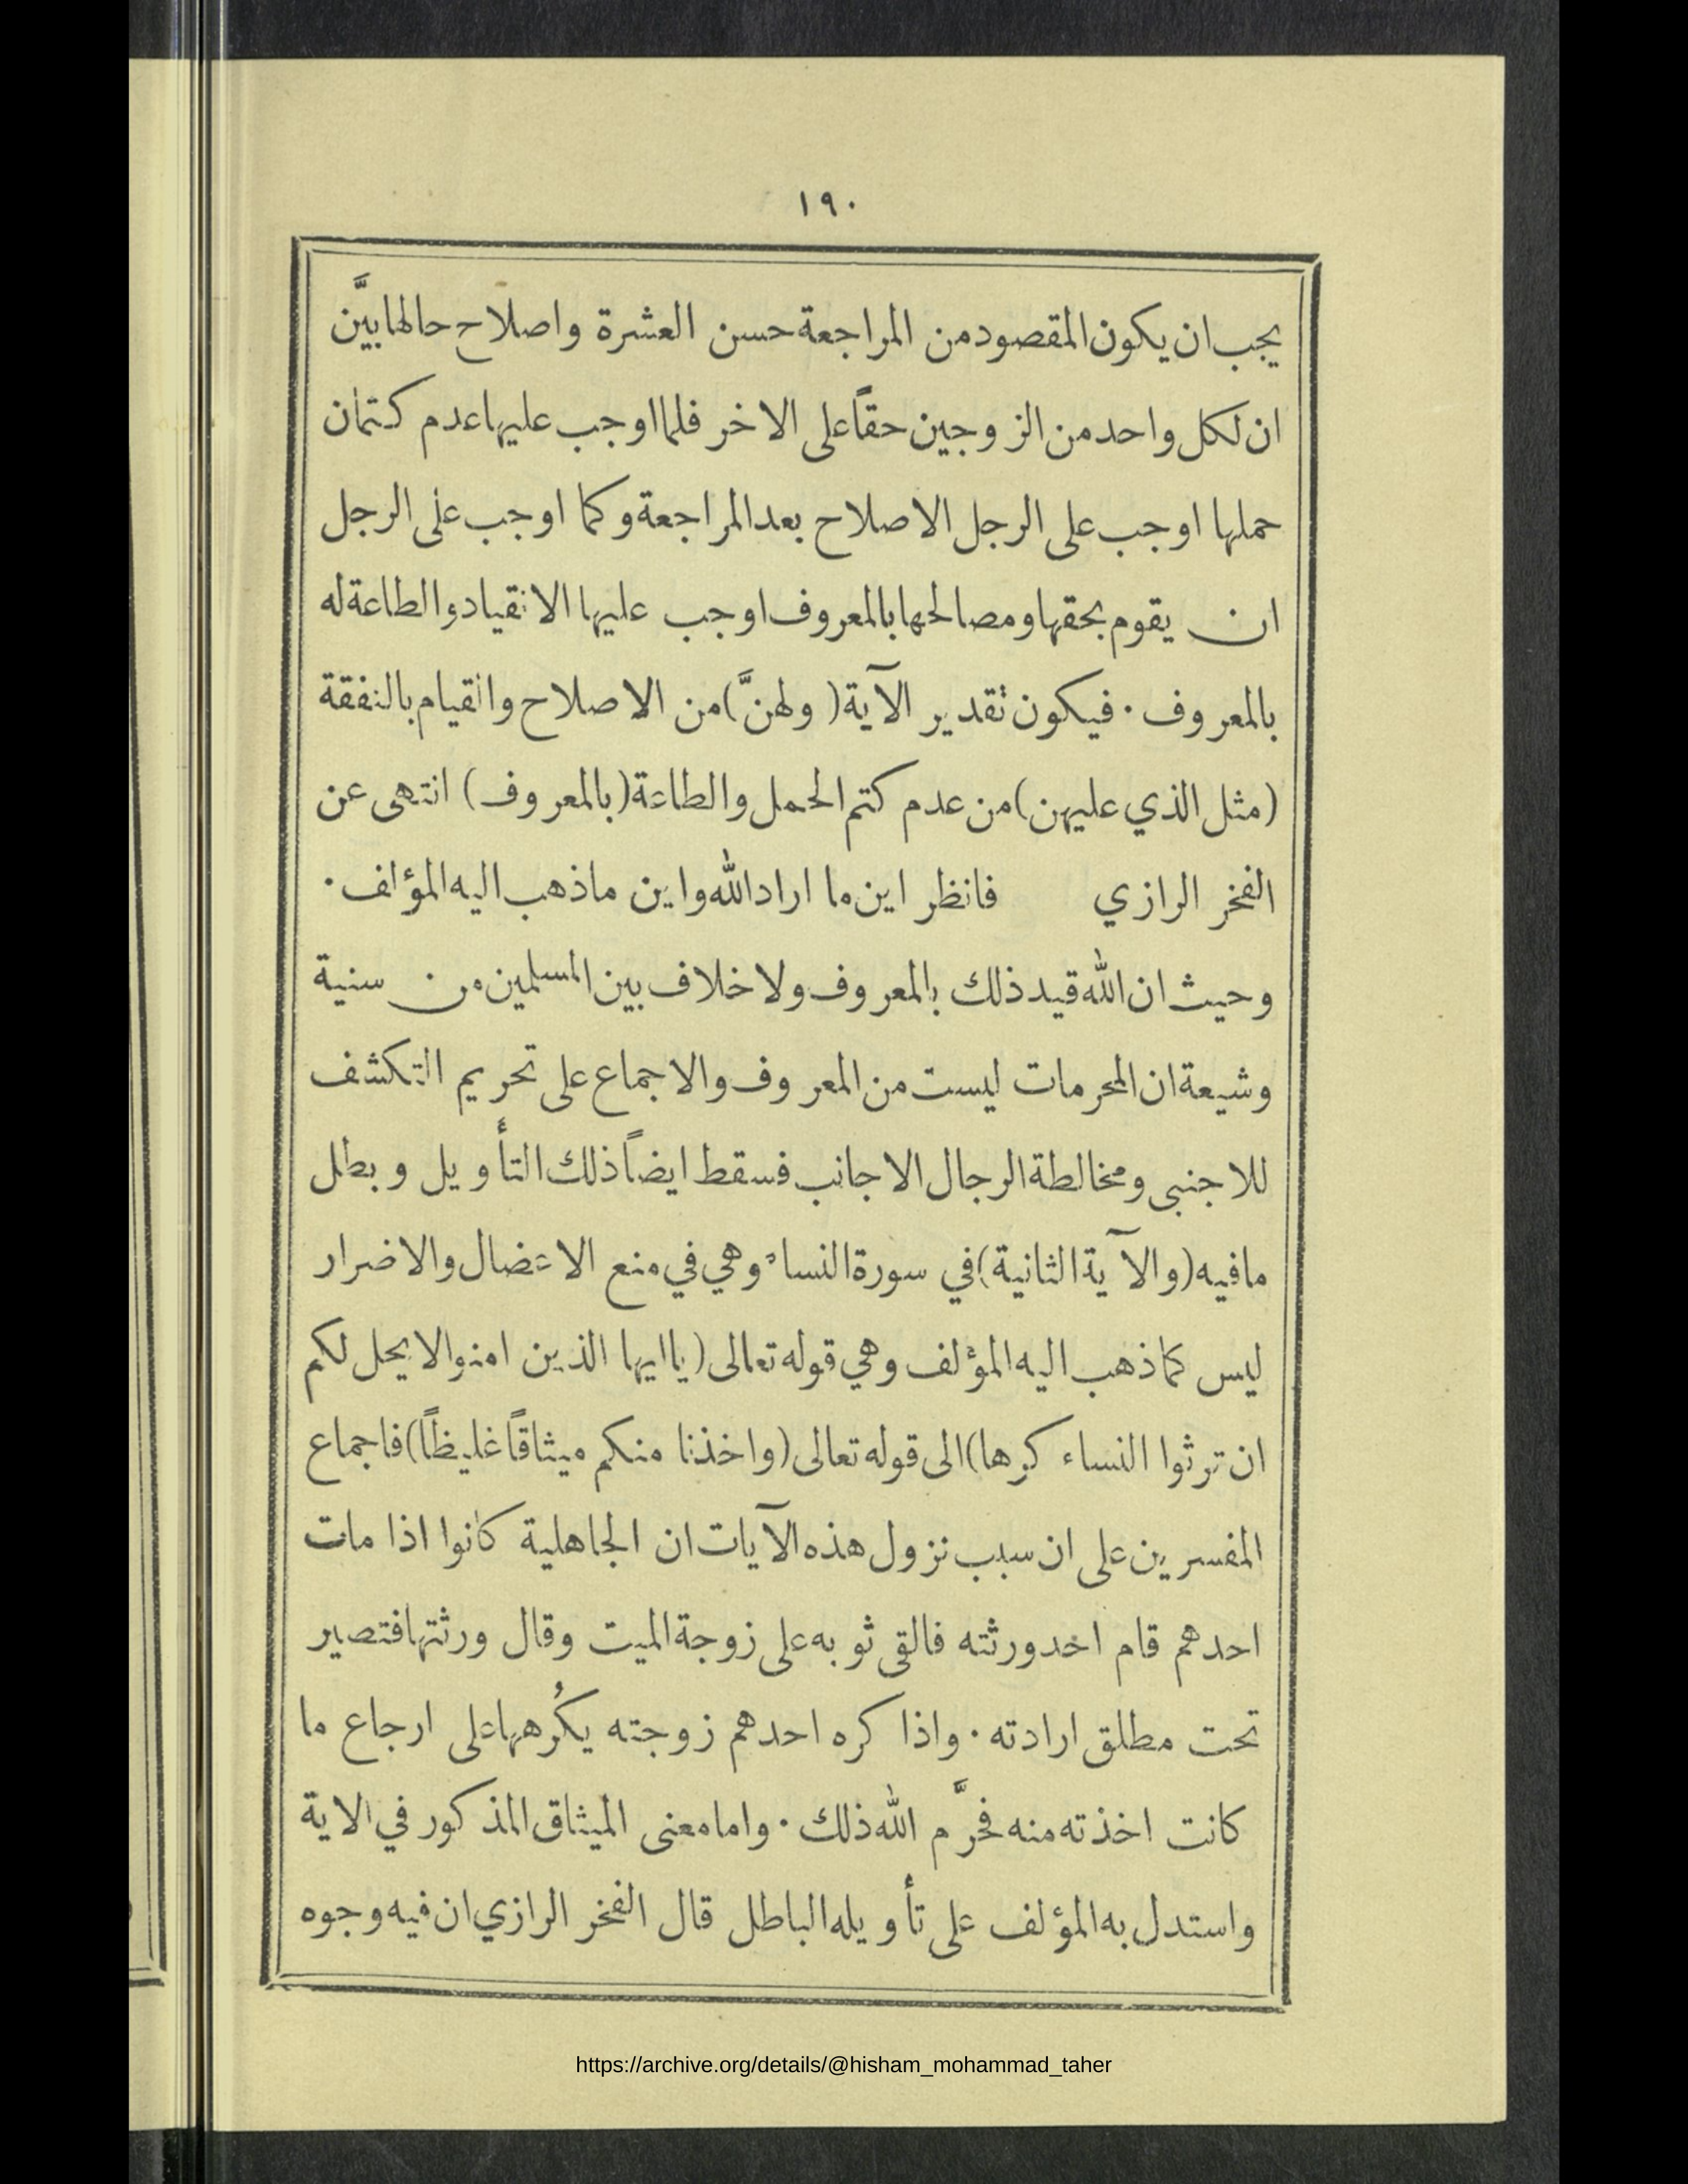 ١٩٠
يجب ان يكون المقصود من المراجعة حسن العشرة واصلاح حالها بيَّن
ان لكل واحد من الزوجين حقاً على الاخر فلما اوجب عليها عدم كتمان
حملها اوجب على الرجل الاصلاح بعد المراجعة وكما اوجب على الرجل
ان يقوم بحقها ومصالحها بالمعروف اوجب عليها الانقياد والطاعة له
بالمعروف . فيكون تقدير الآية ( ولهنَّ ) من الاصلاح والقيام بالنفقة
( مثل الذي عليهن ) من عدم كتم الحمل والطاعة ( بالمعروف ) انتهى عن
الفخر الرازي فانظر اين ما اراد الله واين ما ذهب اليه المؤلف .
وحيث ان الله قيد ذلك بالمعروف ولا خلاف بين المسلمين من سنية
وشيعة ان المحرمات ليست من المعروف والاجماع على تحريم التكشف
للاجنبي ومخالطة الرجال الاجانب فسقط ايضاً ذلك التأويل وبطل
مافيه ( والآية الثانية ) في سورة النساء وهي في منع الاعضال والاضرار
ليس كما ذهب اليه المؤلف وهي قوله تعالى ( يا ايها الذين امنوا لا يحل لكم
ان ترثوا النساء كرها ) الى قوله تعالى ( واخذنا منكم ميثاقاً غليظاً ) فاجماع
المفسرين على ان سبب نزول هذه الآيات ان الجاهلية كانوا اذا مات
احدهم قام احد ورثته فالقى ثوبه على زوجة الميت وقال ورثتها فتصير
تحت مطلق ارادته . واذا كره احدهم زوجته يكُرهها على ارجاع ما
كانت اخذته منه فحرَّم الله ذلك . واما معنى الميثاق المذكور في الاية
واستدل به المؤلف على تأويله الباطل قال الفخر الرازي ان فيه وجوه
https://archive.org/details/@hisham_mohammad_taher